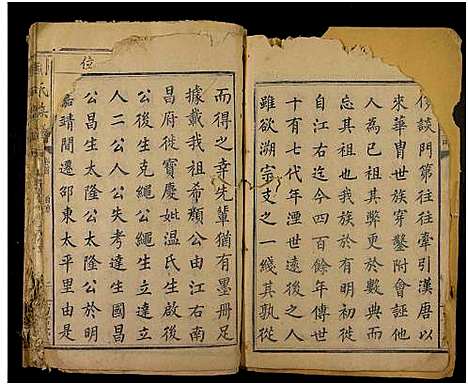 侈談門第往往牽引漢唐以
來華胄世族穿鑿附會誣他
人為已祖其弊也與數典
忘其祖也同我
自江右迄今四百餘年傳世
十有七代年湮世遠後之人
雖欲溯宗支之一綫其孰從
而得之幸先輩猶有墨冊足
據載我祖希顏公由江右南
昌府徙寶慶妣温氏生啟後
公後生克繩公繩生立達立
人二公人公失考達生國昌
公昌生太隆公太隆公於明
嘉靖間遷邵東太平里由是
位